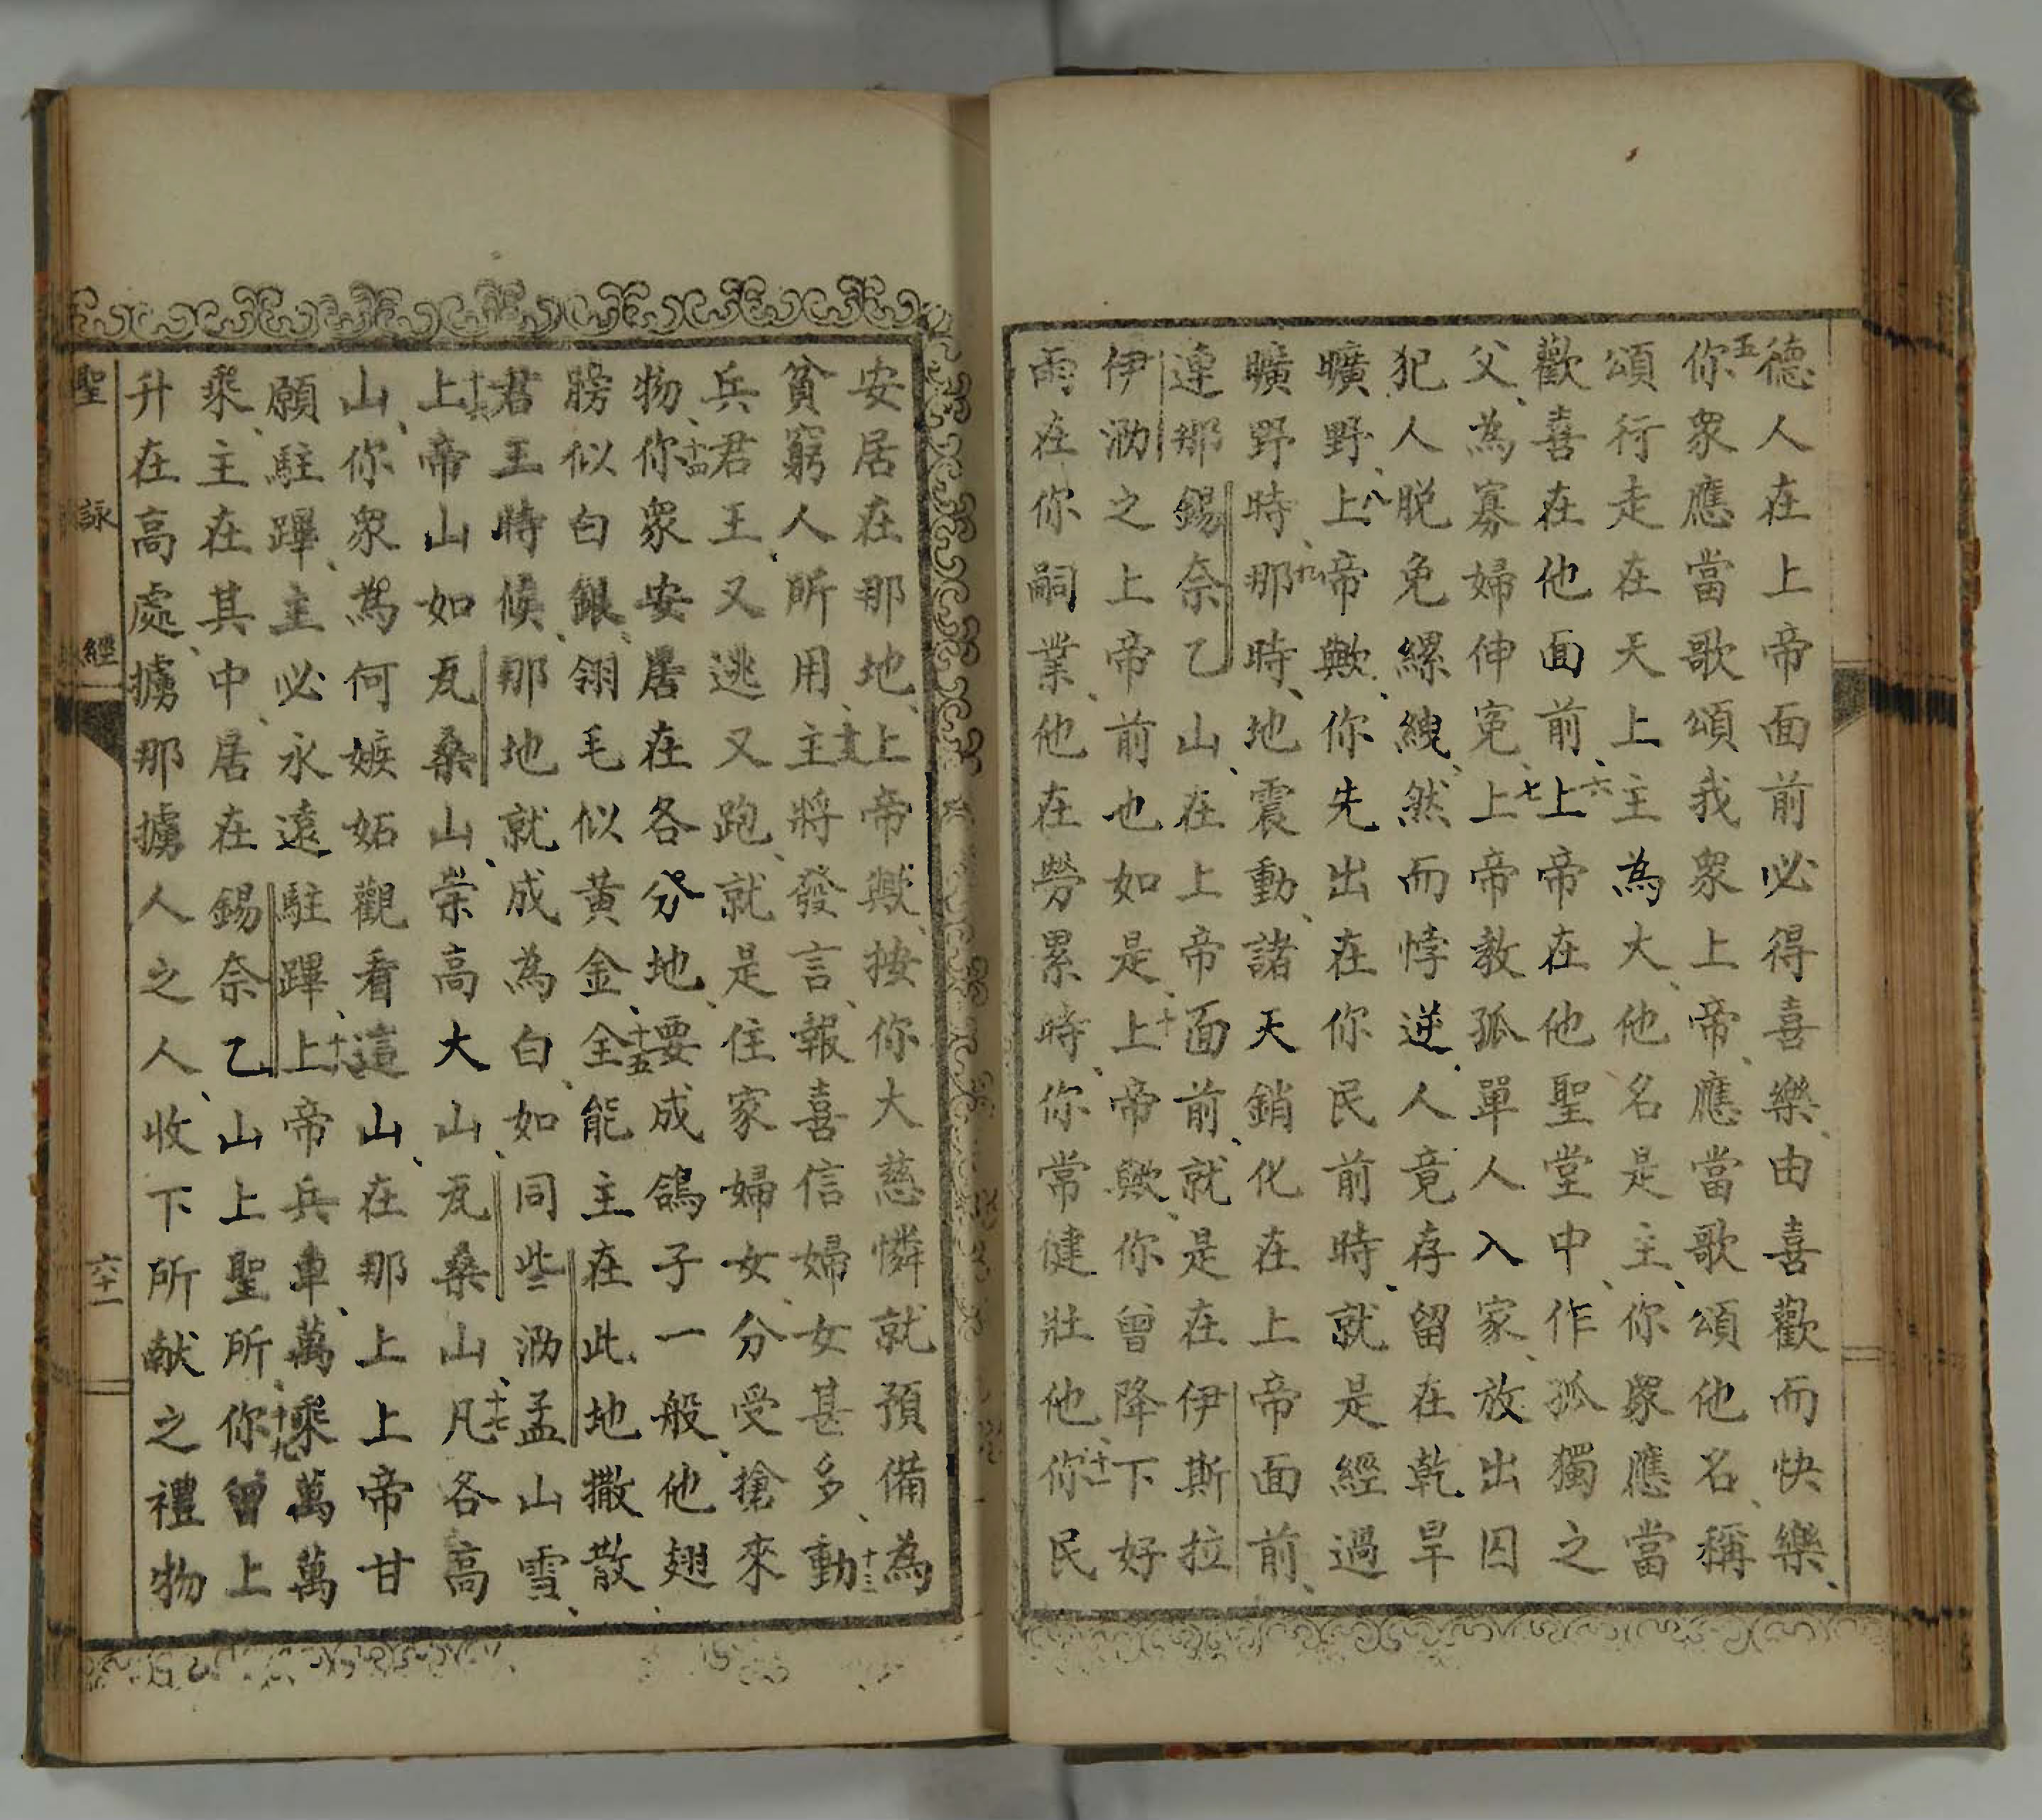 德人在上帝面前必得喜樂、由喜歡而快樂、
五你眾應當歌頌我眾上帝、應當歌頌他名、稱
頌行走在天上主為大、他名是主、你眾應當
歡喜在他面前、六上帝在他聖堂中、作孤獨之
父、為寡婦伸冤、七上帝教孤單人入家、放出囚
犯人脱免縲絏、然而悖逆人竟存留在乾旱
曠野、八上帝歟、你先出在你民前時、就是經過
曠野時、九那時、地震動、諸天銷化在上帝面前、
連那錫奈乙山、在上帝面前、就是在伊斯拉
伊泐之上帝前也如是、十上帝歟、你曾降下好
雨在你嗣業、他在勞累時、你常健壯他、十一你民
安居在那地、上帝歟、按你大慈憐就預備為
貧窮人所用、十二主將發言、報喜信婦女甚多、十三動
兵君王、又逃又跑、就是住家婦女分受搶來
物、十四你眾安居在各分地、要成鴿子一般、他翅
膀似白銀、翎毛似黄金、十五全能主在此地撒散
君王時候、那地就成為白、如同些泐孟山雪、
十六上帝山如瓦桑山、崇高大山、瓦桑山、十七凡各高
山、你眾為何嫉妬觀看這山、在那上上帝甘
願駐蹕、主必永遠駐蹕、十八上帝兵車、萬乘萬萬
乘、主在其中、居在錫奈乙山上聖所、十九你曾上
升在高處、擄那擄人之人、收下所献之禮物
聖詠經
六十一